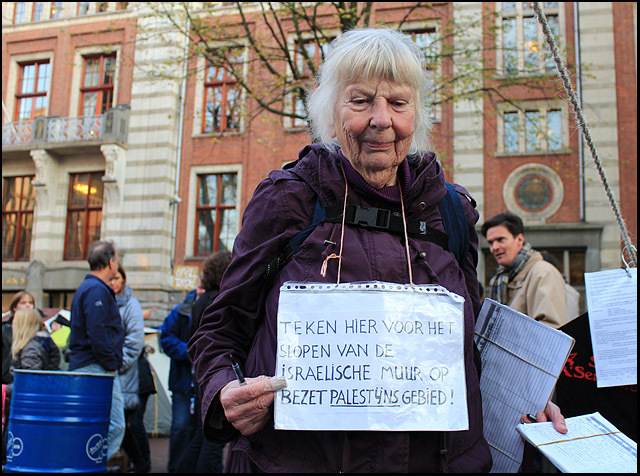 TEKEN HIER VOOR HET
SLOPEN VAN DE
iSRAELISCHE MUUR OP
BEZET PALESTIJNS GEBIED!